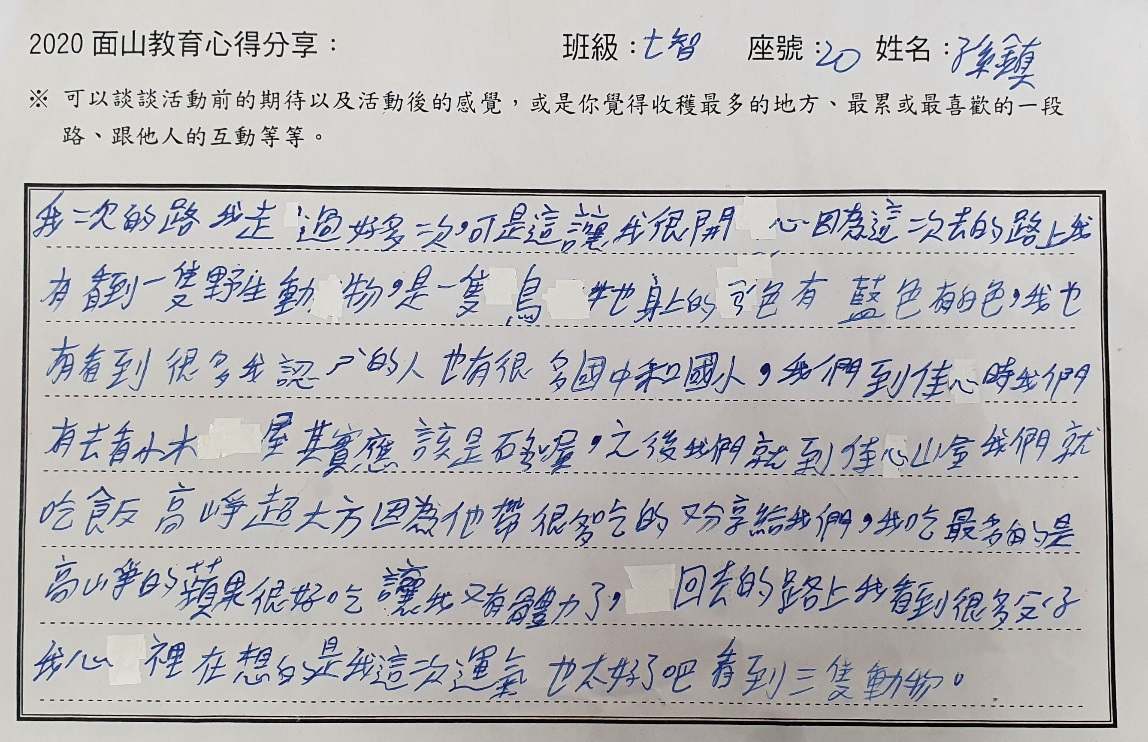 2020 面山教育心得分享： 班級：七智 座號：20 姓名：孫鎮
※ 可以談談活動前的期待以及活動後的感覺，或是你覺得收穫最多的地方、最累或最喜歡的一段
路、跟他人的互動等等。
我二次的路我走過好多次，可是這讓我很開心因為這一次去的路上我
有看到一隻野生動物，是一隻鳥牠身上的色有藍色有白色，我也
有看到很多我認的人也有很多國中和國小，我們到佳心時我們
有去看小木屋其實應該是石屋，之後我們就到佳心山屋我們就
吃飯高崢超大方因為他帶很多吃的又分享給我們，我吃最多的是
高山崢的蘋果很好吃讓我又有體力了，回去的路上我看到很多
我心裡在想的是我這次運氣也太好了吧看到三隻動物。